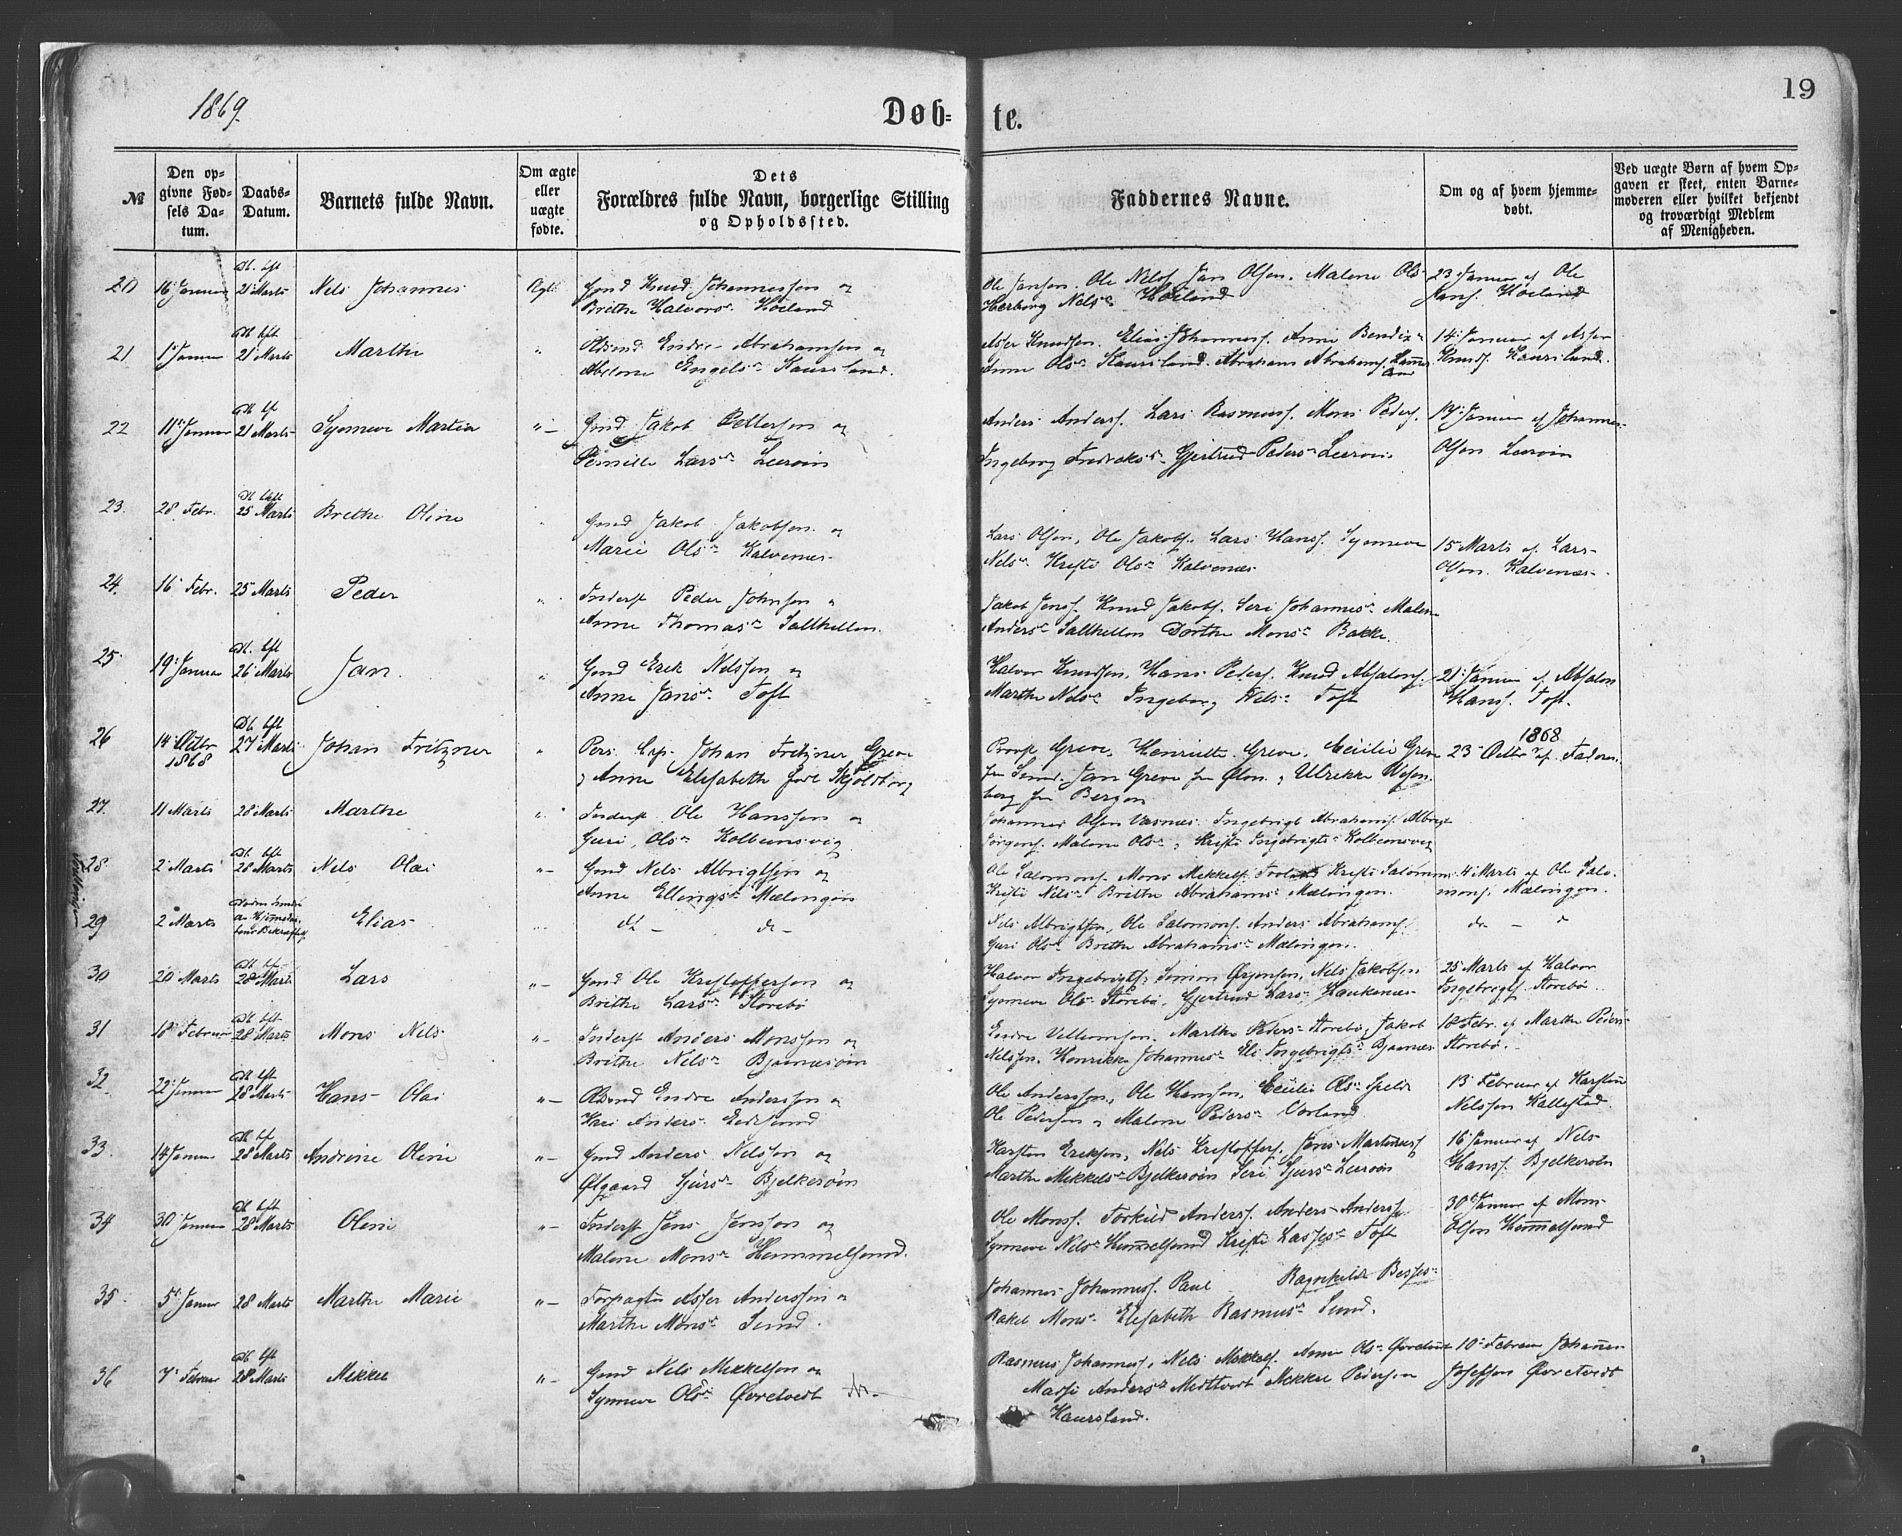 19
1869.
Døb- te.
№
Den opgivne Fødsels Datum.
Daabs-Datum.
Barnets fulde Navn.
Om ægte eller uægte fødte.
Dets Forældres fulde Navn, borgerlige Stilling og Opholdssted.
Faddernes Navne.
Om og af hvem hjemmedøbt.
Ved uægte Børn af hvem Opgaven er skeet, enten Barnemoderen eller hvilket bekjendt og troværdigt Medlem af Menigheden.
20 16 Januar 21 Marts Nels Johannes Ægte Gmd Knud Johannessen og
Brithe Halvors. Høeland
Ole Jansen. Ole Nelss. Jan Olsen. Malene Ols
Herborg Nelsr Høeland
23 Januar af Ole
Jans. Høeland
21 1 Januar 21 Marts Marthe " Endre Abrahamsen og
Abelone Engelsr Haursland.
Asser Knudsen. Elias Johanness. Anne Bendix
Anne Olsr Haursland. Abraham Abrahams.
14 Januar af Asser
Knuds. Haursland.
22 11 Januar 21 Marts Synneve Martia "- Gmd Jakob Pettersen og
Pernille Larsr Leerøin
Anders Anderss. Lars Rasmuss. Mons Peders.
Ingeborg Fredriksr Gjertrud Pedersr Leerøin
17 Januar af Johannes
Olsen Leerøin
23. 28 Febr. 25 Marts Brithe Oline Gmd Jakob Jakobsen og
Marie Olsr Kalvenes
Lars Olsen, Ole Jakobs. Lars Hanss. Synneve
Nelsr Kristi Olsr Kalvenes
15 Marts af Lars
Olsen Kalvenes
24. 16 Febr. 25 Marts Peder " Inderst Peder Johnsen "
Anne Thomasr Salthellen.
Jakob Jenss. Knud Jakobs. Seri Johannesr Malene
Andersr Salthellen Dorthe Monsr Bakke.
25. 19 Januar 26 Marts Jan. " Gmd Erik Nelssen og
Anne Jansr Toft
Halvor Knudsen, Hans Peders. Knud Absalons.
Marthe Nelsr Ingeborg Nelsr Toft
21 Januar af Absalon
Hanss. Toft.
26 14 Octbr
1868 27 Marts Johan Fritzner " Pers. Cap. Johan Fritzner Greve
og Anne Elisabeth født Skjoldborg
Provst Greve, Henriette Greve, Cecilie Greve
fra Sund. Jan Greve fra Ølen, Ulrikke
berg fra Bergen
1868
23 Octbr af Faderen.
27. 11 Marts 28 Marts Marthe " Inderst Ole Hanssen og
Guri Olsr Kolbeensvig
Johannes Olsen Vasnæs. Ingebrigt Abrahams. Albrigt
Jørgens. Malene Olsr, Kristi Ingebrigtsr Kolbeensvig
28 2 Marts 28 Marts Nels Olai "- Gmd Nels Albrigtsen og
Anne Ellingsr Mælingen
Ole Salomons. Mons Mikkels. Kristi Salomons
Kristi Nelsr Brithe Abrahamsr Mælingen.
4 Marts af Ole Salo-
mons. Mælingen.
29 2 Marts Elias do - do -
Nels Albrigtsen, Ole Salomons. Anders Abrahams.
Guri Olsr Brithe Abrahamsr Mælingen.
do - "
30 20 Marts 28 Marts Lars "- Gmd Ole Kristoffersen og
Brithe Larsr Storebø
Halvor Ingebrigts, Simon Ørjensen, Nels Jakobsen
Synneve Olsr Storebø, Gjertrud Larsr Haukenes
25 Marts af Halvor
Ingebrigts. Storebø.
31 18 Februar 28 Marts Mons Nels "- Inderst Anders Monssen og
Brithe Nelsr Bjørnesøin
Endre Vellemsen, Marthe Pedersr Storebø, Jakob
Nelssen, Henrikke Johannesr Eli Ingebrigtsr Bjørnes
18 Febr. af Marthe Pedersr
Storebø.
32 22 Januar 28 Marts Hans Olai "- Endre Anderssen og
Kari Anders.
Ole Anderssen, Ole Hanssen, Cecilie Olsr Spelde
Ole Pedersen og Malene Pedersr
13 Februar af Karsten
Nelssen Kallestad.
33. 14 Januar 28 Marts Andrine Oline "- Gmd Anders Nelssen og
Ølgaard Sjursr Bjelkerøin
Karsten Eriksen, Nels Kristoffers. Jens Martinus
Marthe Mikkelsr Bjelkerøin Seri Sjursr Leerøin
16 Januar af Nels
Hanss. Bjelkerøin
34 30 Januar 28 Marts Oline "- Inderst Jens Jenssen og
Malene Monsr Hemmelsund.
Ole Monss. Torkild Anderss. Anders Anderss.
Synneve Nelsr Hemmelsund Kristi Lassesr Toft
30 Januar af Mons
Olsen Hemmelsund
35 5 Januar 28 Marts Marthe Marie "- Forpagter Asser Anderssen og
Marthe Monsr Sund.
Johannes Johanness. Paul Ragnhilde
Rakel Monsr Elisabeth Rasmusr Sund.
36 7 Februar 28 Marts Mikkel "- Gmd Nels Mikkelsen og
Synneve Olsr Øvretvedt
Rasmus Johanness, Nels Mikkels. Anne Olsr Øvretvedt
Madsi Andersr Midttvedt Mikkel Pedersen
Haursland.
10 Februar Johannes
Josefsen Øvretvedt